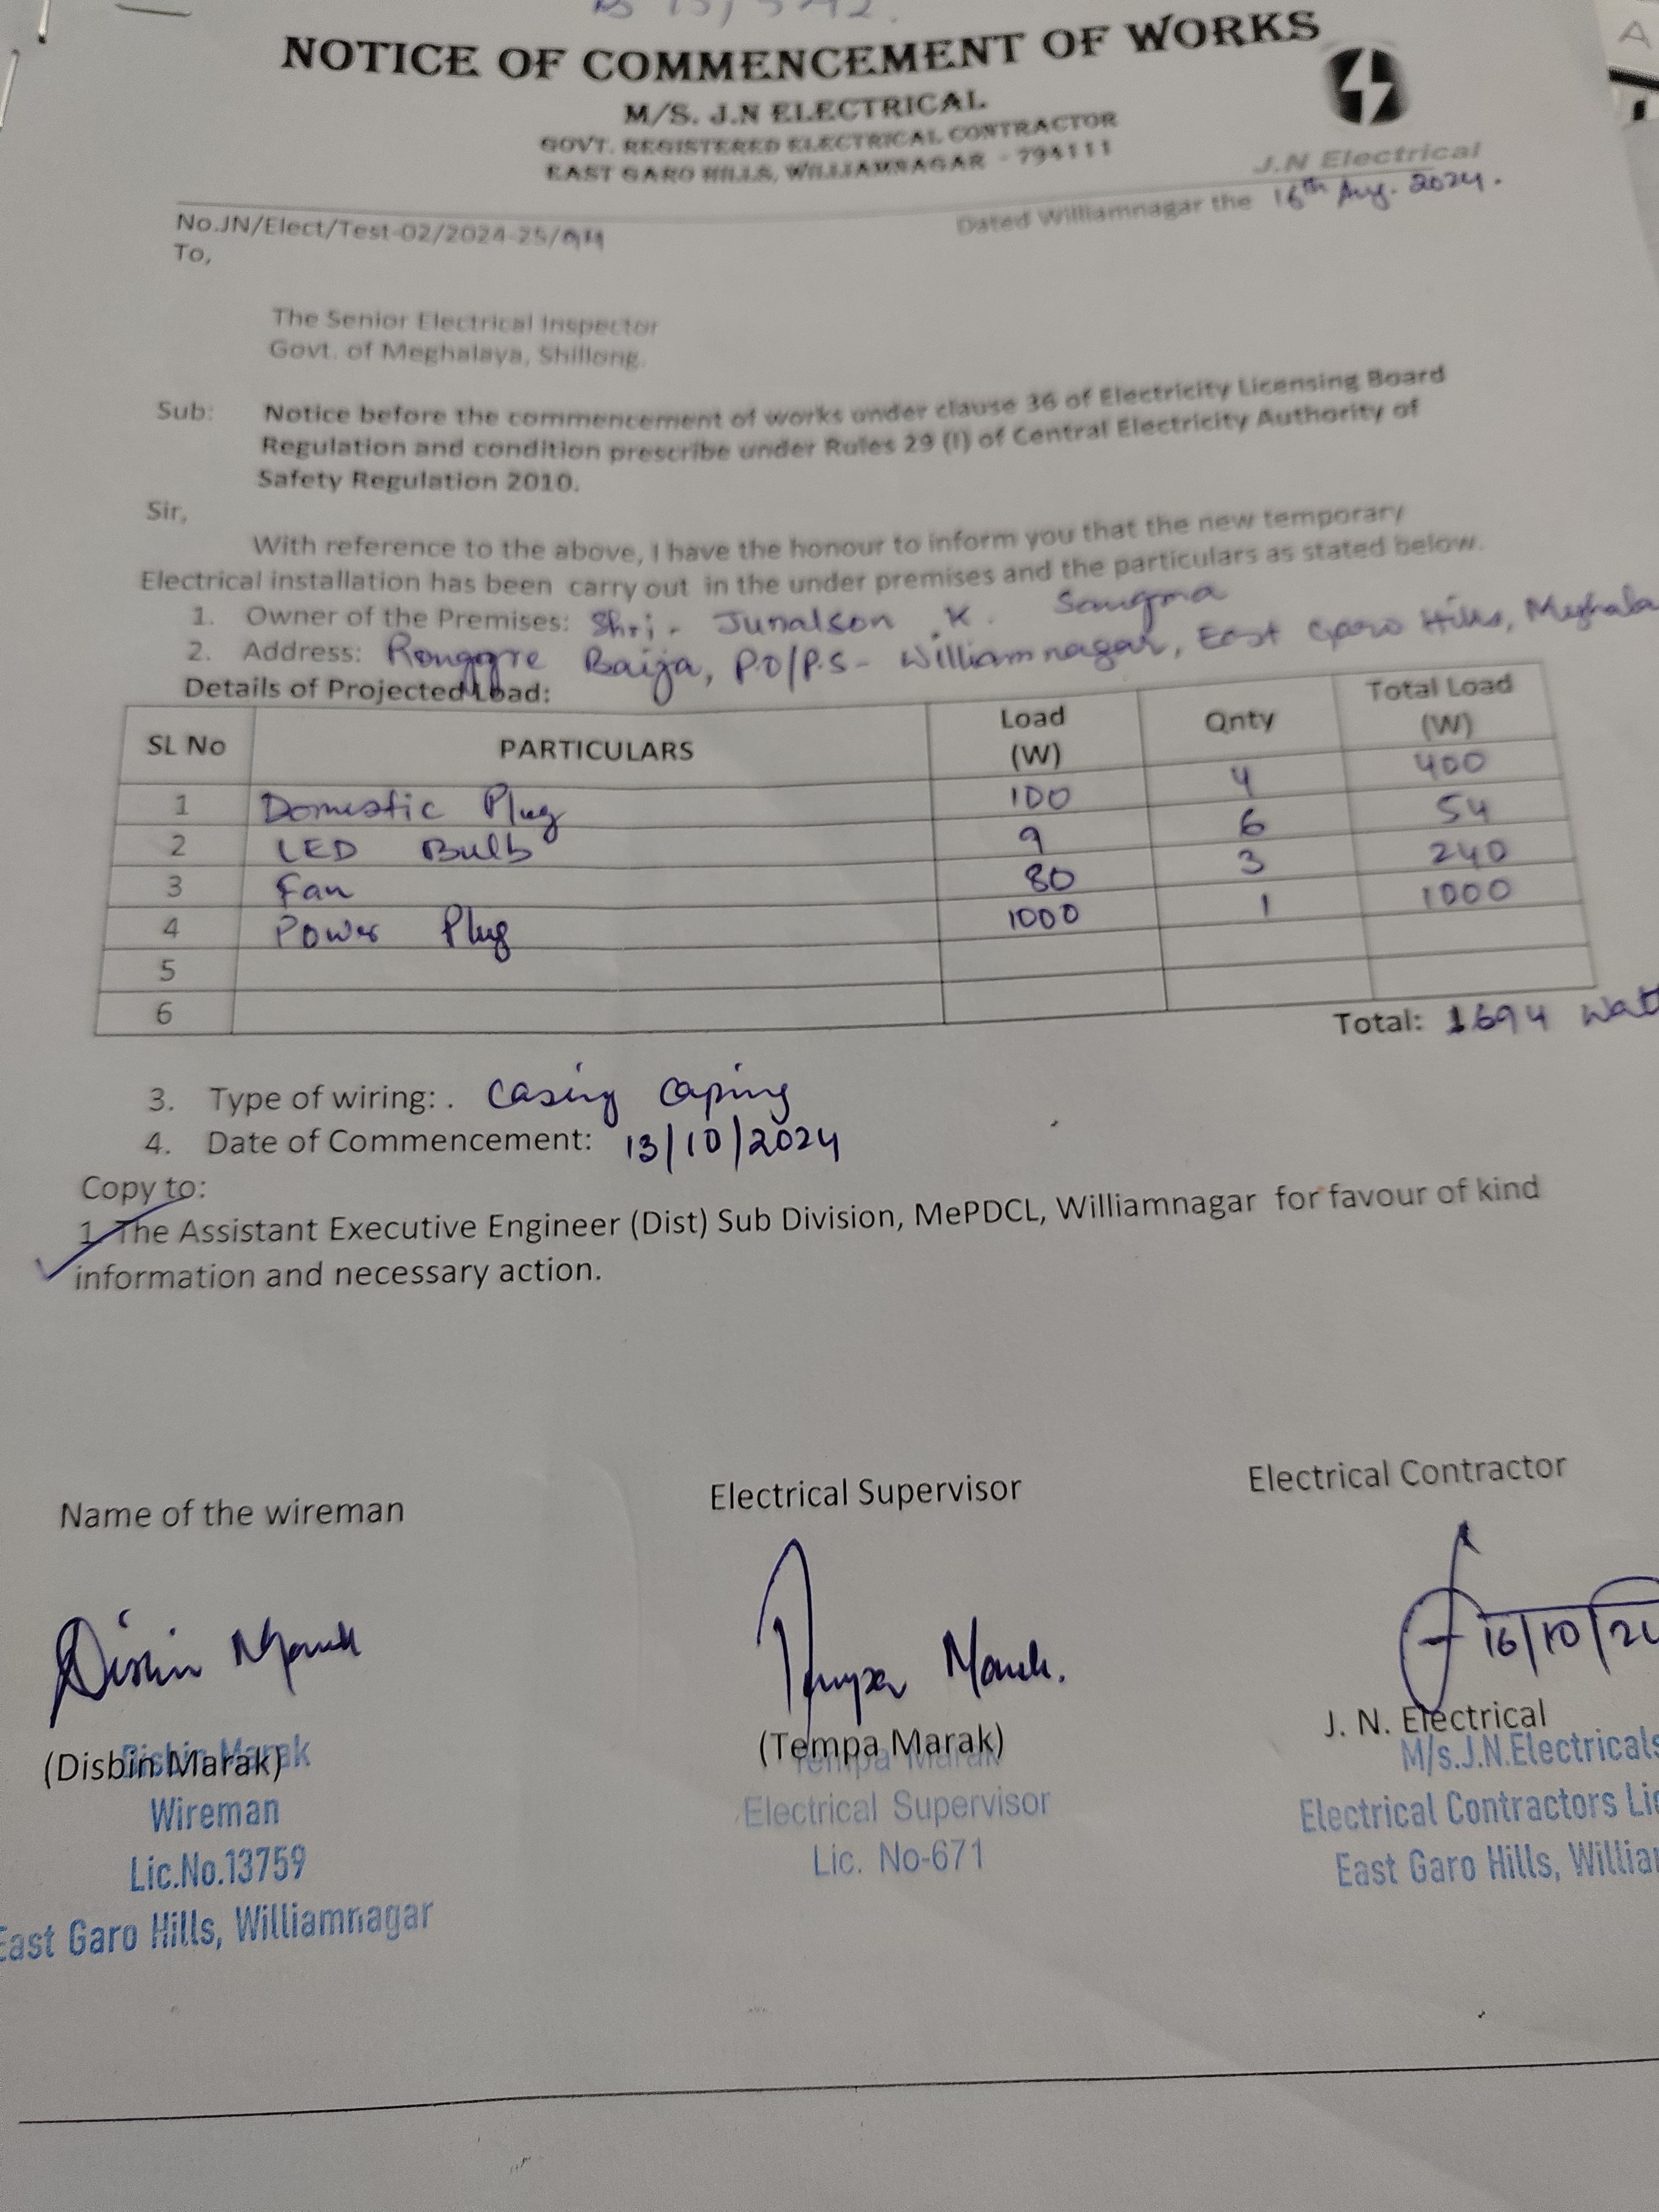 NOTICE OF COMMENCEMENT OF WORKS
M/S. J.N ELECTRICAL
GOVT. REGISTERED ELECTRICAL CONTRACTOR
EAST GARO HILLS, WILLIAMNAGAR - 794111
J.N Electrical
No.JN/Elect/Test-02/2024-25/
Dated Williamnagar the 16th Aug. 2024.
To,
The Senior Electrical Inspector
Govt. of Meghalaya, Shillong.
Sub: Notice before the commencement of works under clause 36 of Electricity Licensing Board
Regulation and condition prescribe under Rules 29 (I) of Central Electricity Authority of
Safety Regulation 2010.
Sir,
With reference to the above, I have the honour to inform you that the new temporary
Electrical installation has been carry out in the under premises and the particulars as stated below.
1. Owner of the Premises: Shri. Junalson K. Sangma
2. Address: Ronggre Baija, P.O/P.S - Williamnagar, East Garo Hills, Meghala
Details of Projected Load:
SL No PARTICULARS Load (W) Qnty Total Load (W)
1 Domestic Plug 100 4 400
2 LED Bulb 9 6 54
3 Fan 80 3 240
4 Power Plug 1000 1 1000
5
6
Total: 1694 Wat
3. Type of wiring: . Casing Caping
4. Date of Commencement: 13/10/2024
Copy to:
1. The Assistant Executive Engineer (Dist) Sub Division, MePDCL, Williamnagar for favour of kind
information and necessary action.
Name of the wireman Electrical Supervisor Electrical Contractor
Disbin Marak Tempa Marak. 16/10/2
(Disbin Marak) (Tempa Marak) J. N. Electrical
Disbin Marak Tempa Marak M/s.J.N.Electricals
Wireman Electrical Supervisor Electrical Contractors Lic
Lic.No.13759 Lic. No-671 East Garo Hills, Willia
East Garo Hills, Williamnagar